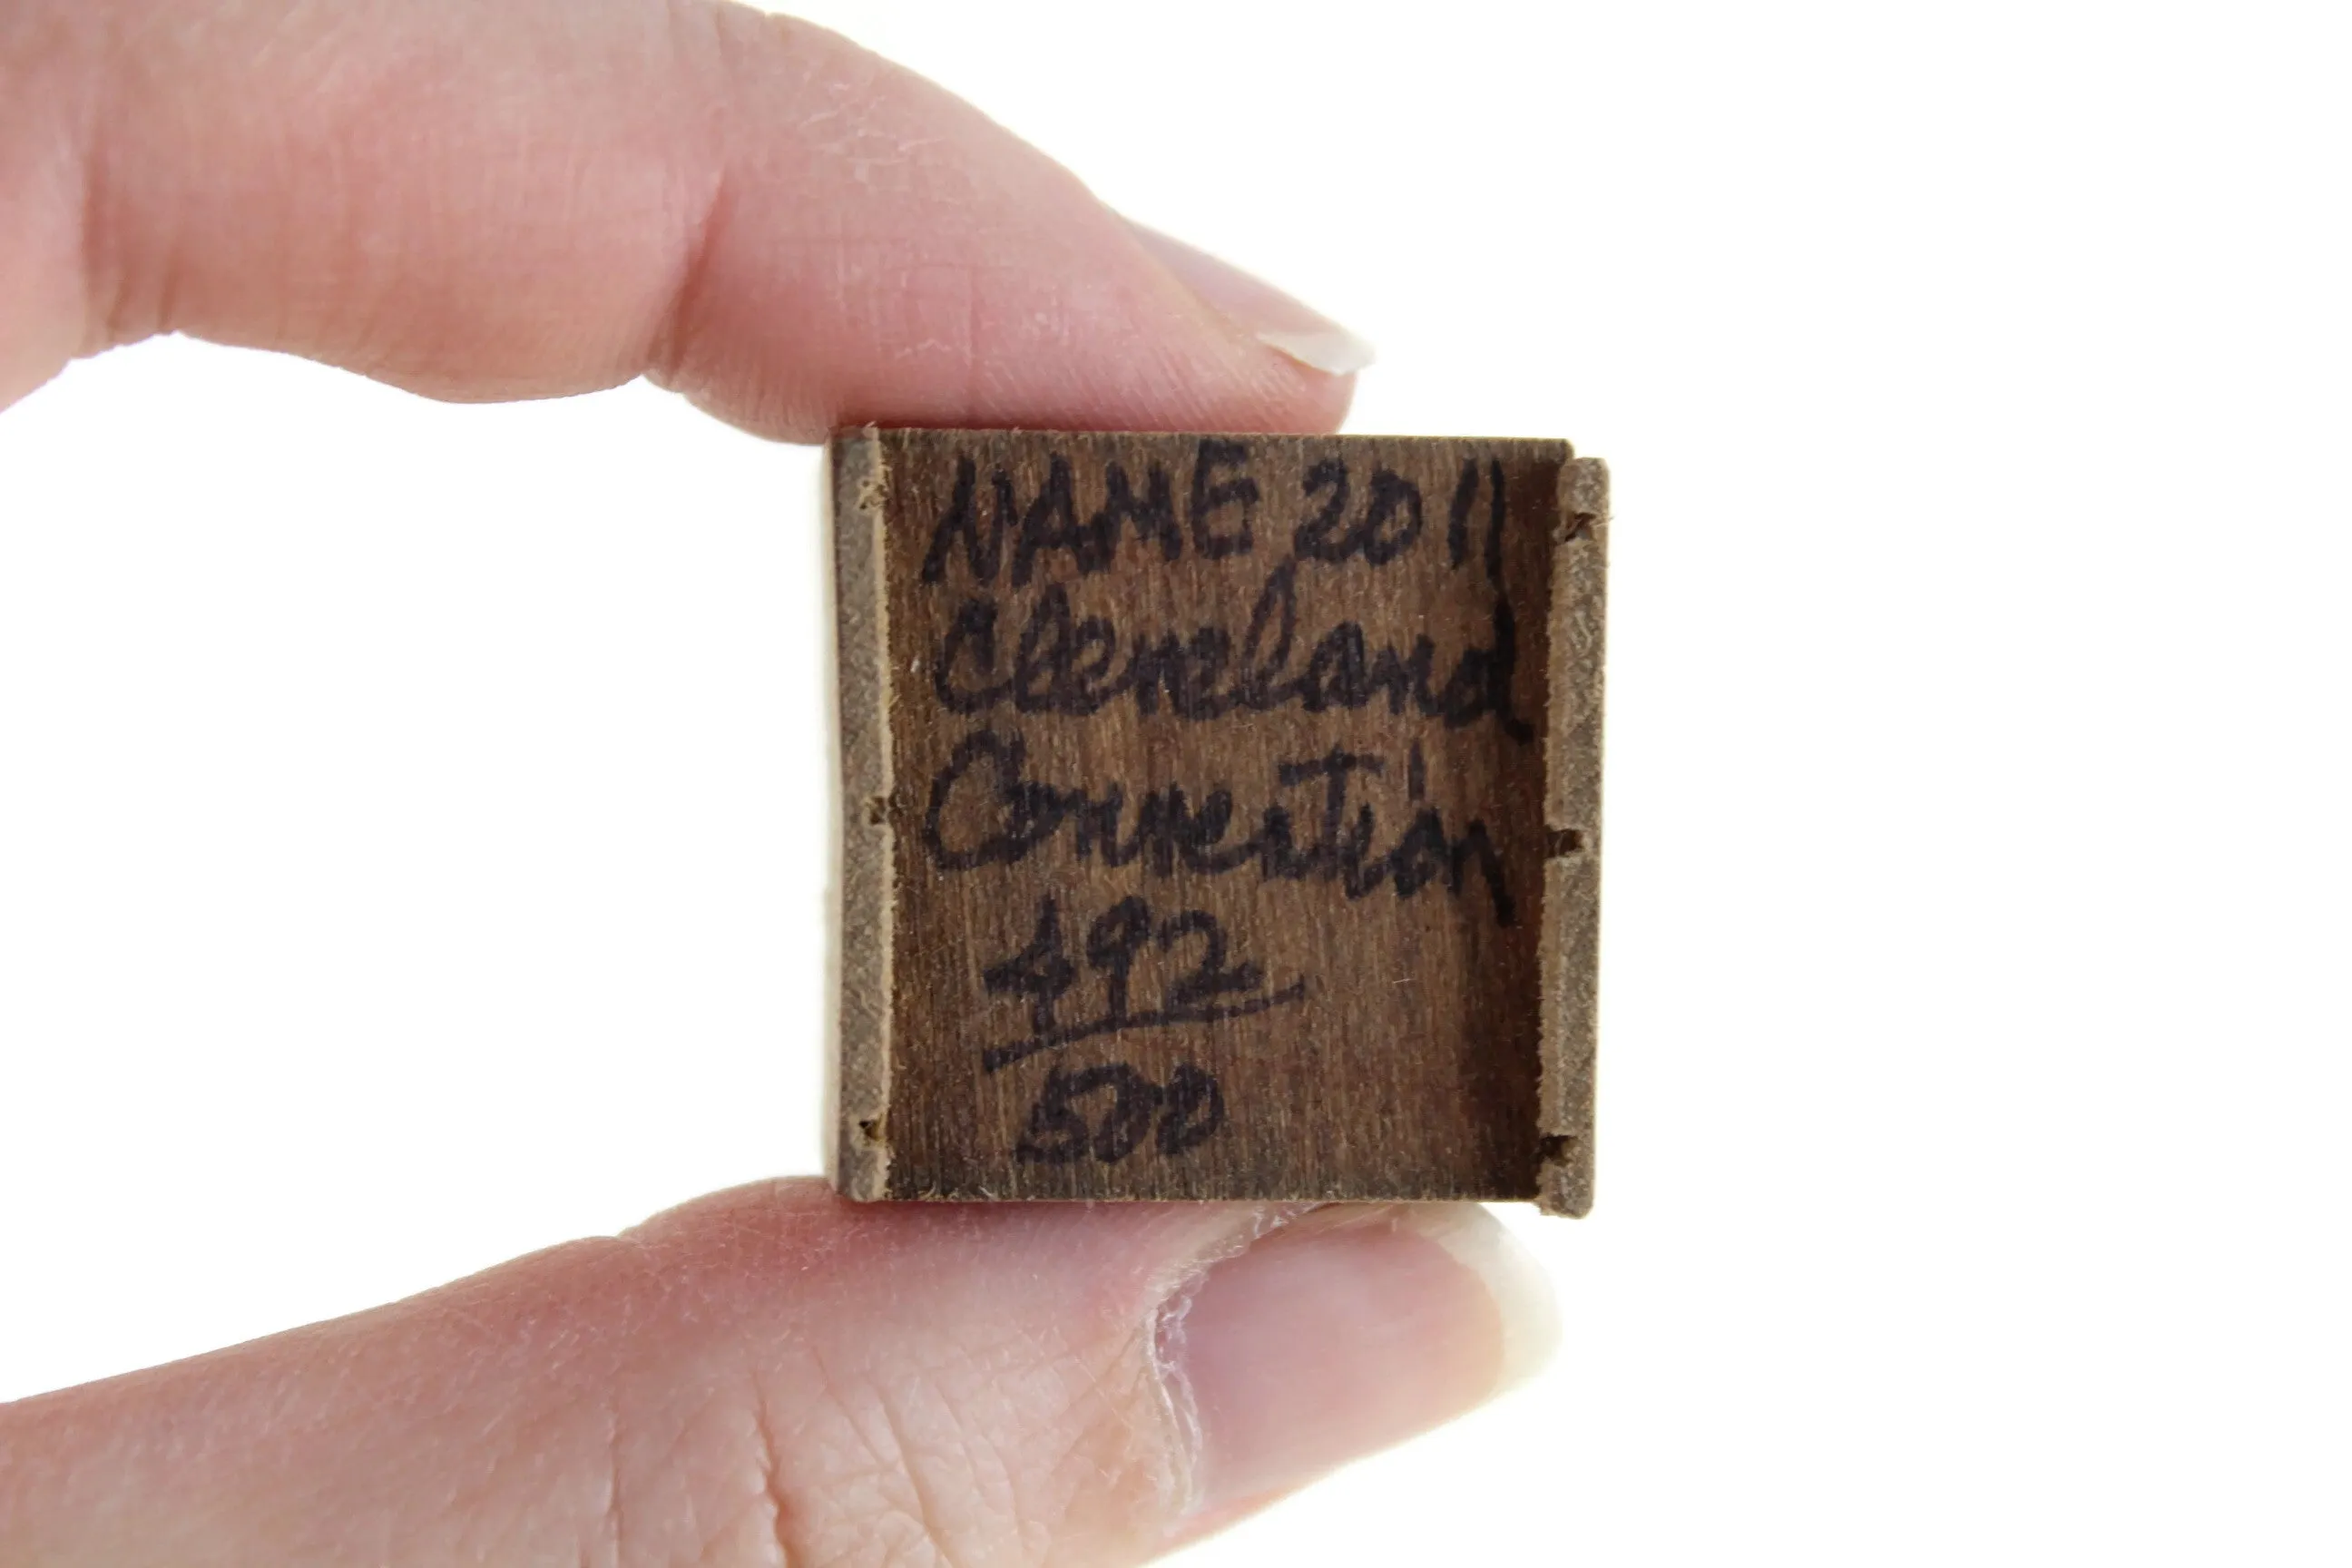 NAME 2011
Cleveland
Convention
492
500